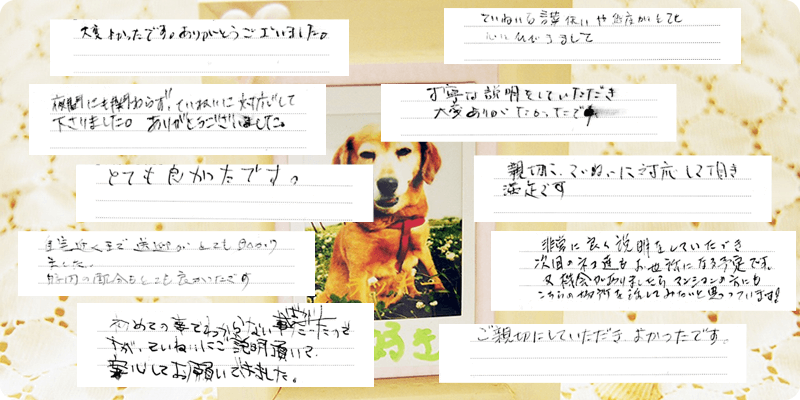 大変よかったです。ありがとうございました。
夜間にも関わらず、ていねいに対応して
下さりました。ありがとうございました。
とても良かったです。
自宅近くまで送迎がとても助かり
ました。
時間の都合もとても良かったです
初めての事でわからない事だったっ
すが、ていねいにご説明頂いて、
安心してお願いできました。
好き
ていねいな言葉使いや態度がとても
心にひびきまして
丁寧な説明をしていただき
大変ありがたかったです
親切に、ていねいに対応して頂き
満足です
非常に良く説明をしていただき
次回のネコ達もお世話になる予定です。
又機会がありましたらマンションの方にも
こちらの場所を話してみたいと思っています!
ご親切にしていただきよかったです。